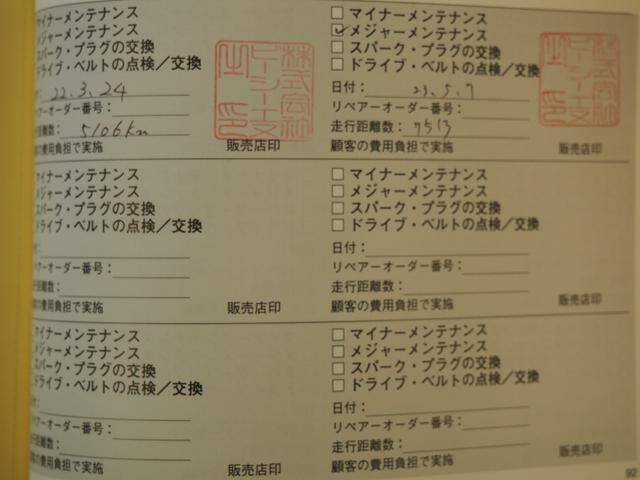 マイナーメンテナンス
メジャーメンテナンス
スパーク・プラグの交換
ドライブ・ベルトの点検／交換
22.3.24
ペアーオーダー番号：
行距離数：5106km
の費用負担で実施
販売店印
マイナーメンテナンス
メジャーメンテナンス
スパーク・プラグの交換
ドライブ・ベルトの点検／交換
日付：23.5.7
リペアーオーダー番号：
走行距離数：7513
顧客の費用負担で実施
販売店印
マイナーメンテナンス
メジャーメンテナンス
スパーク・プラグの交換
ドライブ・ベルトの点検／交換
ペアーオーダー番号：
距離数：
の費用負担で実施
販売店印
マイナーメンテナンス
メジャーメンテナンス
スパーク・プラグの交換
ドライブ・ベルトの点検／交換
日付：
リペアーオーダー番号：
走行距離数：
顧客の費用負担で実施
販売店印
マイナーメンテナンス
メジャーメンテナンス
スパーク・プラグの交換
ドライブ・ベルトの点検／交換
ペアーオーダー番号：
行距離数：
の費用負担で実施
販売店印
マイナーメンテナンス
メジャーメンテナンス
スパーク・プラグの交換
ドライブ・ベルトの点検／交換
日付：
リペアーオーダー番号：
走行距離数：
顧客の費用負担で実施
販売店印
92